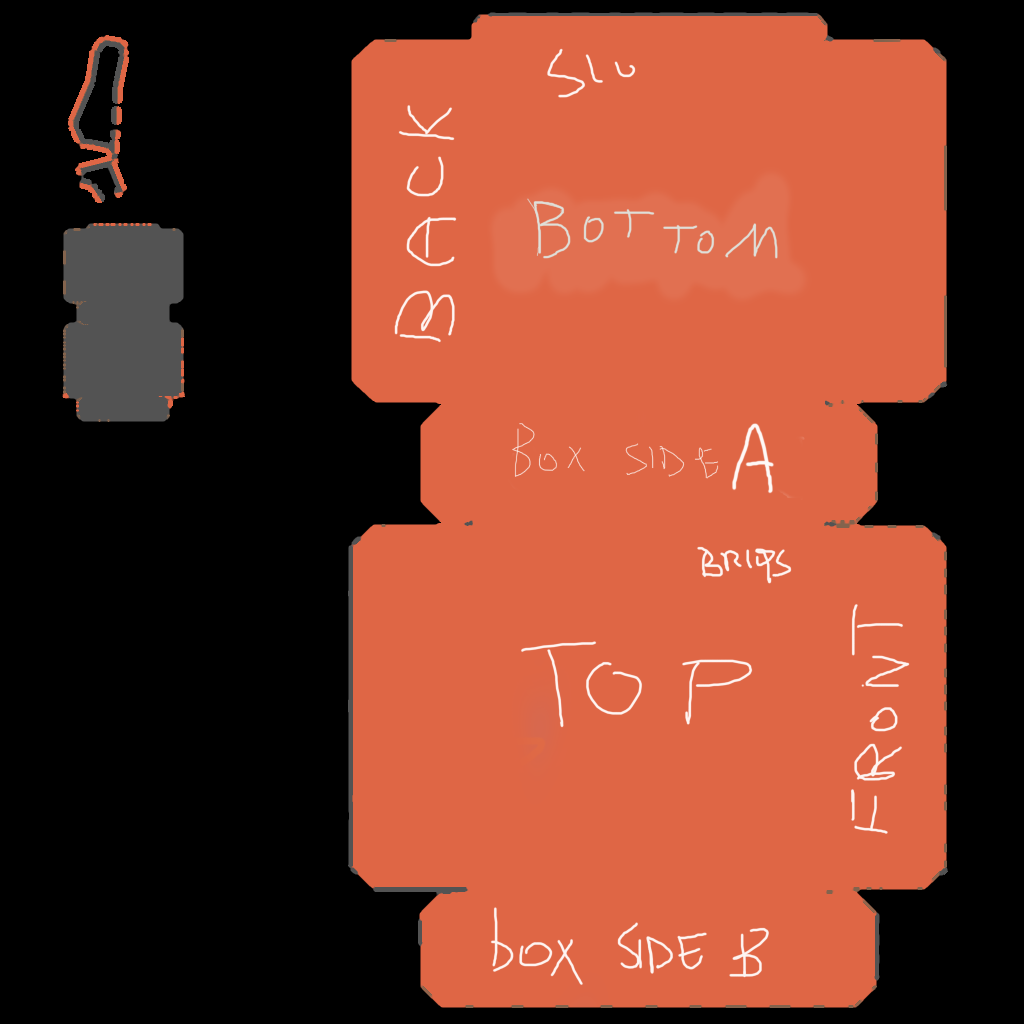 BACK
BOTTOM
BOX SIDE A
TOP
FRONT
box SIDE B